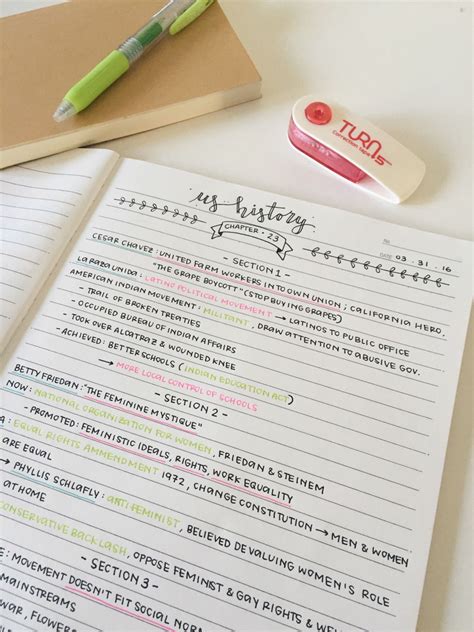 TURNS
Correction Tape
us history
CHAPTER • 23
NO.
DATE 03 . 31 . 16
- SECTION 1 -
CESAR CHAVEZ : UNITED FARM WORKERS INTO OWN UNION ; CALIFORNIA HERO.
"THE GRAPE BOYCOTT" (STOP BUYING GRAPES)
LA RAZA UNIDA : LATINO POLITICAL MOVEMENT → LATINOS TO PUBLIC OFFICE
AMERICAN INDIAN MOVEMENT : MILITANT, DRAW ATTENTION TO ABUSIVE GOV.
- TRAIL OF BROKEN TREATIES
- OCCUPIED BUREAU OF INDIAN AFFAIRS
- TOOK OVER ALCATRAZ & WOUNDED KNEE
- ACHIEVED : BETTER SCHOOLS ( INDIAN EDUCATION ACT)
→ MORE LOCAL CONTROL OF SCHOOLS
- SECTION 2 -
BETTY FRIEDAN : "THE FEMININE MYSTIQUE"
NOW : NATIONAL ORGANIZATION FOR WOMEN, FRIEDAN & STEINEM
- PROMOTED : FEMINISTIC IDEALS, RIGHTS, WORK EQUALITY
A : EQUAL RIGHTS AMMENDMENT 1972, CHANGE CONSTITUTION → MEN & WOMEN
ARE EQUAL
→ PHYLLIS SCHLAFLY : ANTI-FEMINIST, BELIEVED DEVALUING WOMEN'S ROLE
AT HOME
CONSERVATIVE BACKLASH, OPPOSE FEMINIST & GAY RIGHTS & WEL
- SECTION 3 -
E : MOVEMENT DOESN'T FIT SOCIAL NORM
MAINSTREAMS
WAR, FLOWERS